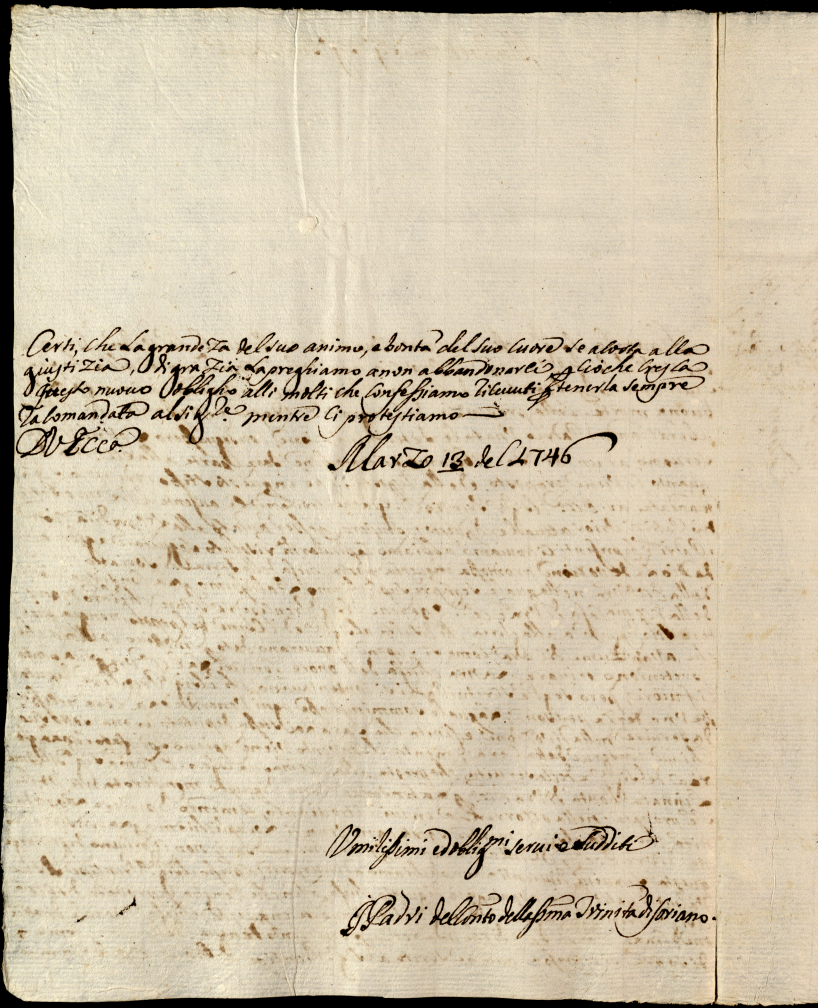 Certi, che la grandeza del suo animo, e bontà del suo cuore se acosta alla
giustizia, di grazia La preghiamo a non abbandonarci, acciò che Cresca
questo nuovo obbligho alli molti che Confessiamo riceuuti tenerla sempre
racomandata al Sig.re mentre ci protestiamo
D V Ecca
Marzo 13 del 1746
Vmilissimi ed obblig.mi serui e sudditi
Padri del Conto della Ssma Trinità di Soriano.